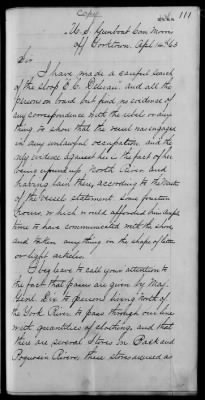 Copy
111
U. S. Gunboat Com. Morris
off Yorktown, Apl. 14th 63
Sir
I have made a careful search
of the Sloop and all the
persons on board but find no evidence of
any correspondence with the rebels or any
thing to show that the vessel was engaged
in any unlawful occupation, and the
only evidence against her is the fact of her
being up North River and
having laid there, according to the Master
of the vessel statement. Some fourteen
hours, which would afforded him ample
time to have communicated with the shore
and taken any thing in the shape of letters
or light articles.
I beg leave to call your attention to
the fact that passes are given by Maj.
Genl. Dix to persons living North of
the York River to pass through our lines
with quantities of clothing, and that
there are several Stores in Back and
Poquosin Rivers, these stores